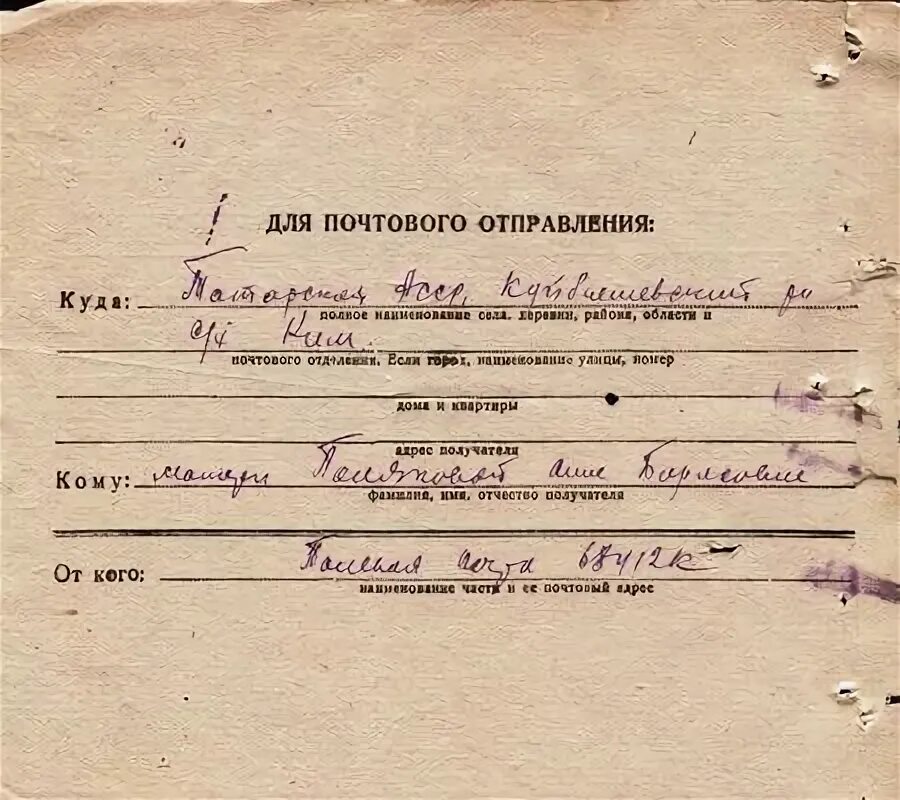 ДЛЯ ПОЧТОВОГО ОТПРАВЛЕНИЯ:
Куда: Татарская Асср, Куйбышевский рн
полное наименование села, деревни, района, области и
с/х Ким.
почтового отделения. Если город, наименование улицы, номер
дома и квартиры
адрес получателя
Кому: матери Поляковой Анне Борисовне
фамилия, имя, отчество получателя
От кого: Полевая почта 68412К
наименование части и ее почтовый адрес